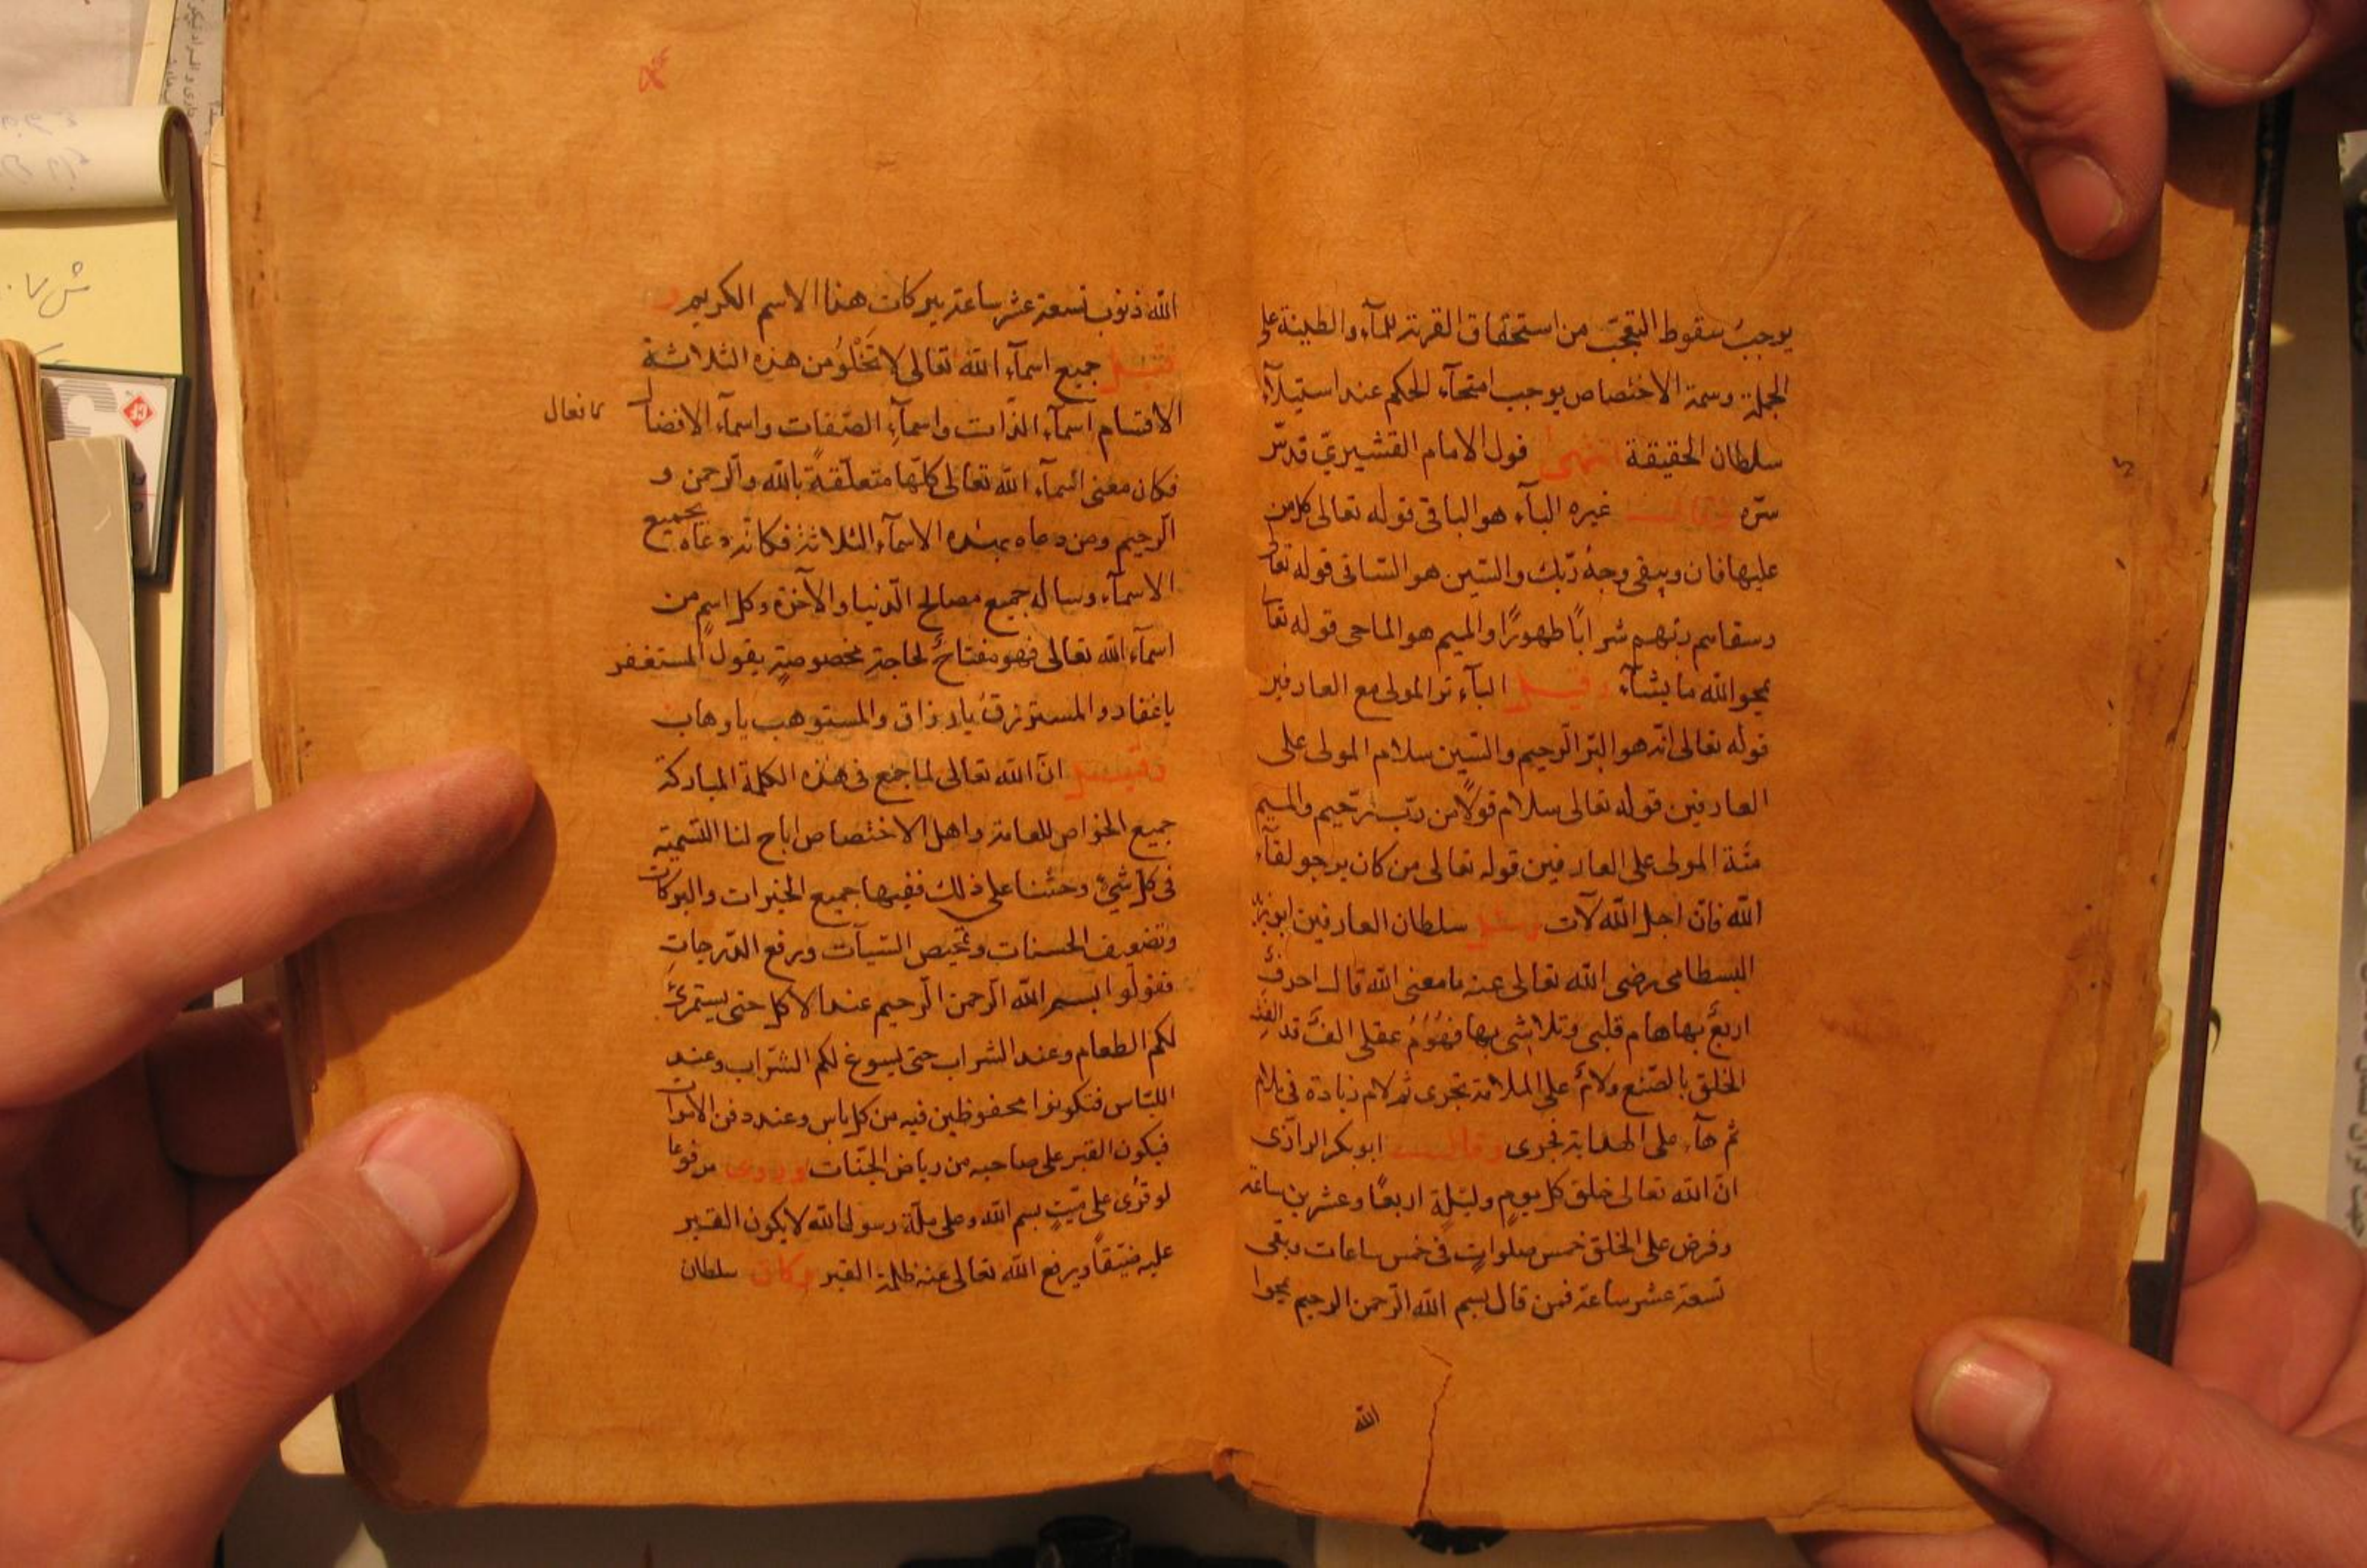 يوجبُ سقوط التعجّب من استحقاق القربة للمآء والطينة على
الجملة وسمة الاختصاص يوجب امتحآء الحكم عند استيلآء
سلطان الحقيقة انتهى قول الامام القشيري قدسّ
سرّه وقال غيره البآء هو الباقى قوله تعالى كل من
عليها فان ويبقى وجهُ ربّك والسّين هو السّاقى قوله تعالى
وسقاهم ربّهم شراباً طهورًا والميم هو الماحى قوله تعالى
يمحو الله ما يشآء وقيل البآء برّ المولى مع العارفين
قوله تعالى انّه هو البّر الرّحيم والسّين سلام المولى على
العارفين قوله تعالى سلام قولًا من ربّ رّحيم والميم
منّة المولى على العارفين قوله تعالى من كان يرجو لقآء
الله فانّ اجل الله لآت وسئل سلطان العارفين ابو يزيد
البسطامى رضى الله تعالى عنه ما معنى الله قال احرفٌ
اربعٌ بها هام قلبى وتلاشى بها فهُومُ عقلى الفٌ قد الّف
الخلق بالصّنع ولامٌ على الملامة تجرى ثم لام زيادة فى
ثم هآء على الهداية تجرى وقال ابو بكر الرازى
انّ الله تعالى خلق كل يومٍ وليلةٍ اربعًا وعشرين ساعة
وفرض على الخلق خمس صلواتٍ فى خمس ساعات وبقى
تسعة عشر ساعة فمن قال بسم الله الرّحمن الرحيم يمحوا
الله
الله ذنوب تسعة عشر ساعة ببركات هذا الاسم الكريم و
قيل جميع اسمآء الله تعالى لا تخْلُو من هذه الثلاثة
الاقسام اسمآء الذّات واسمآء الصّفات واسمآء الافضال
كافعال
فكان معنى اسمآء الله تعالى كلّها متعلّقةً بالله والرّحمن و
الرّحيم ومن دعاه بهذه الاسمآء الثلاثة فكانّه دعاه بجميع
الاسمآء وساله جميع مصالح الدّنيا والآخرة وكل اسمٍ من
اسمآء الله تعالى فهو مفتاحٌ لحاجةٍ مخصوصةٍ يقول المستغفر
يا غفار والمسترزقُ يا رزاق والمستوهب يا وهاب
وقيل انّ الله تعالى لما جمع فى هذه الكلمة المباركة
جميع الخواص للعامة واهل الاختصاص اباح لنا التسمية
فى كل شيءٍ وحثّنا على ذلك ففيها جميع الخيرات والبركات
وتضعيف الحسنات وتمحيص السّيآت ورفع الدّرجات
فقولوا بسم الله الرّحمن الرّحيم عند الاكل حتى يستمرئَ
لكم الطعام وعند الشراب حتى يسوغ لكم الشّراب وعند
اللبّاس فتكونوا محفوظين فيه من كل باس وعند دفن الاموات
فيكون القبر على صاحبه من رياض الجنّات وروى مرفوعا
لو قرئ على ميّتٍ بسم الله وعلى ملّة رسول الله لا يكون القبر
عليه ضيّقاً ويرفع الله تعالى عنه ظلمة القبر وكان سلطان